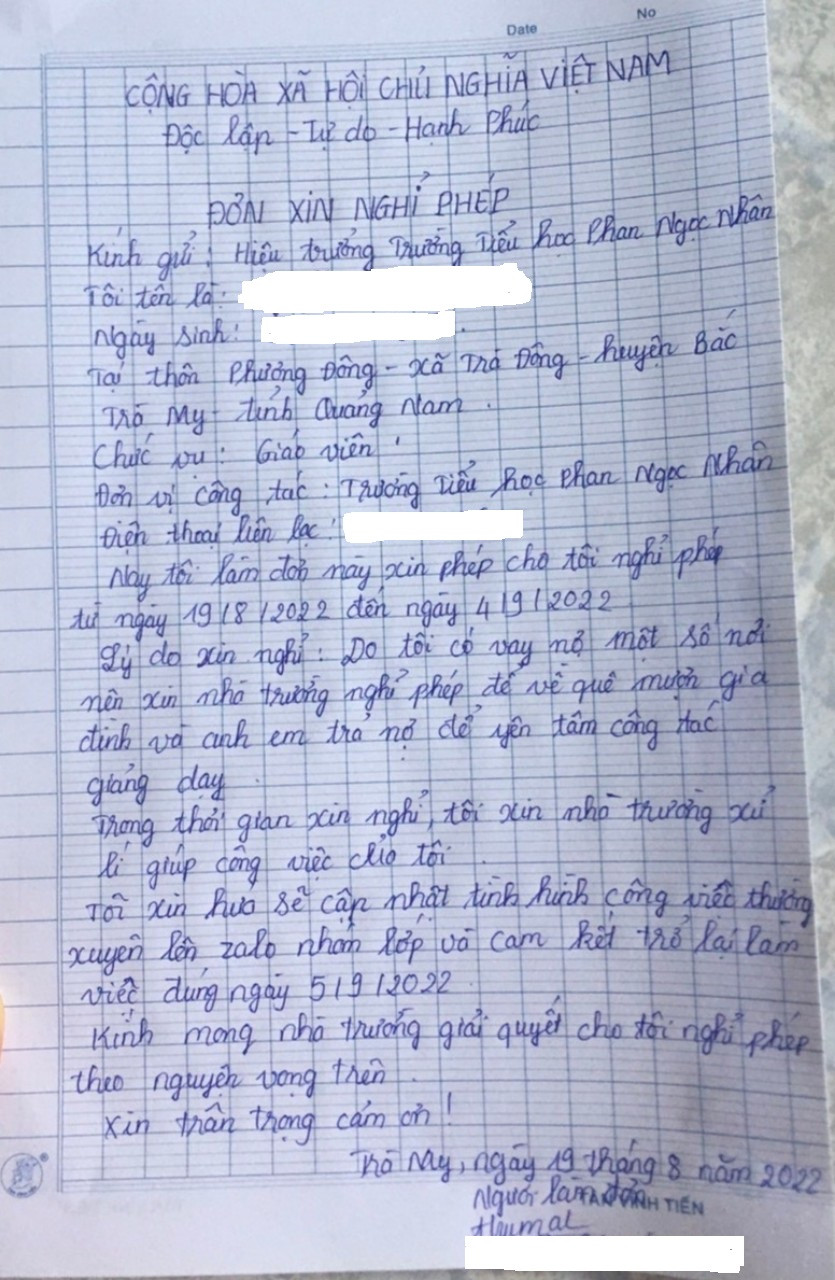 No
Date
CỘNG HÒA XÃ HỘI CHỦ NGHĨA VIỆT NAM
Độc lập - Tự do - Hạnh Phúc
ĐƠN XIN NGHỈ PHÉP
Kính gửi: Hiệu trưởng Trường Tiểu học Phan Ngọc Nhân
Tôi tên là:
Ngày sinh:
Tại thôn Phương Đông - xã Trà Đông - huyện Bắc
Trà My - tỉnh Quảng Nam.
Chức vụ: Giáo viên.
Đơn vị công tác: Trường Tiểu học Phan Ngọc Nhân
Điện thoại liên lạc:
Nay tôi làm đơn này xin phép cho tôi nghỉ phép
từ ngày 19/8/2022 đến ngày 4/9/2022
Lý do xin nghỉ: Do tôi có vay nợ một số nơi
nên xin nhà trường nghỉ phép để về quê mượn gia
đình và anh em trả nợ để yên tâm công tác
giảng dạy.
Trong thời gian xin nghỉ, tôi xin nhà trường xử
lí giúp công việc cho tôi.
Tôi xin hứa sẽ cập nhật tình hình công việc thường
xuyên lên zalo nhóm lớp và cam kết trở lại làm
việc đúng ngày 5/9/2022.
Kính mong nhà trường giải quyết cho tôi nghỉ phép
theo nguyện vọng trên.
Xin trân trọng cảm ơn!
Trà My, ngày 19 tháng 8 năm 2022
Người làm đơn
VĨNH TIẾN